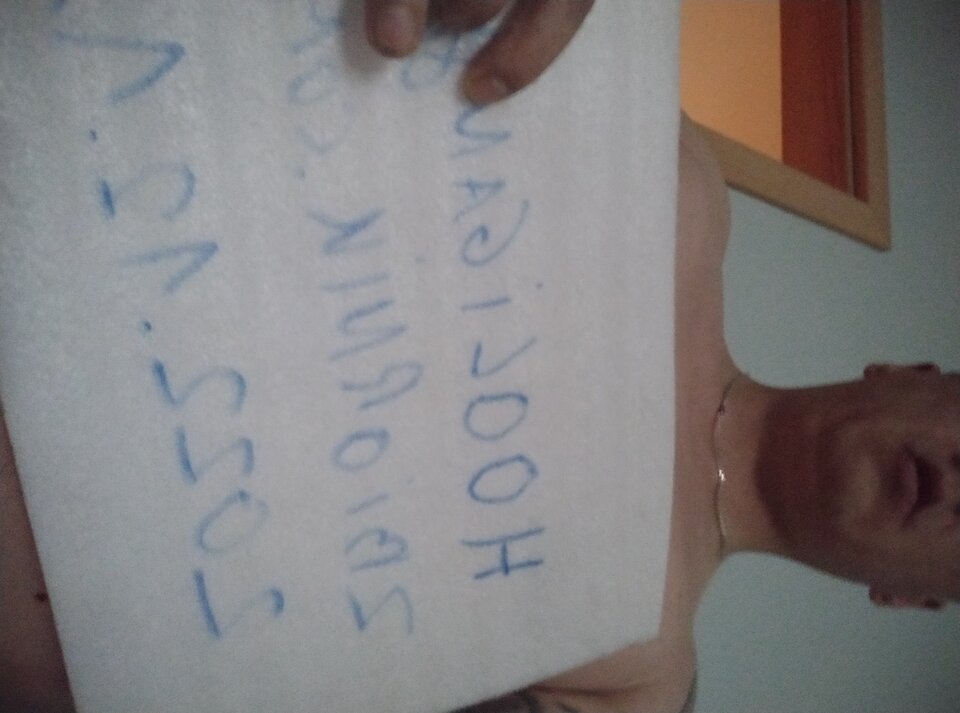 HOOLiGAN
ZBiORNiK.COM
2022.12.1